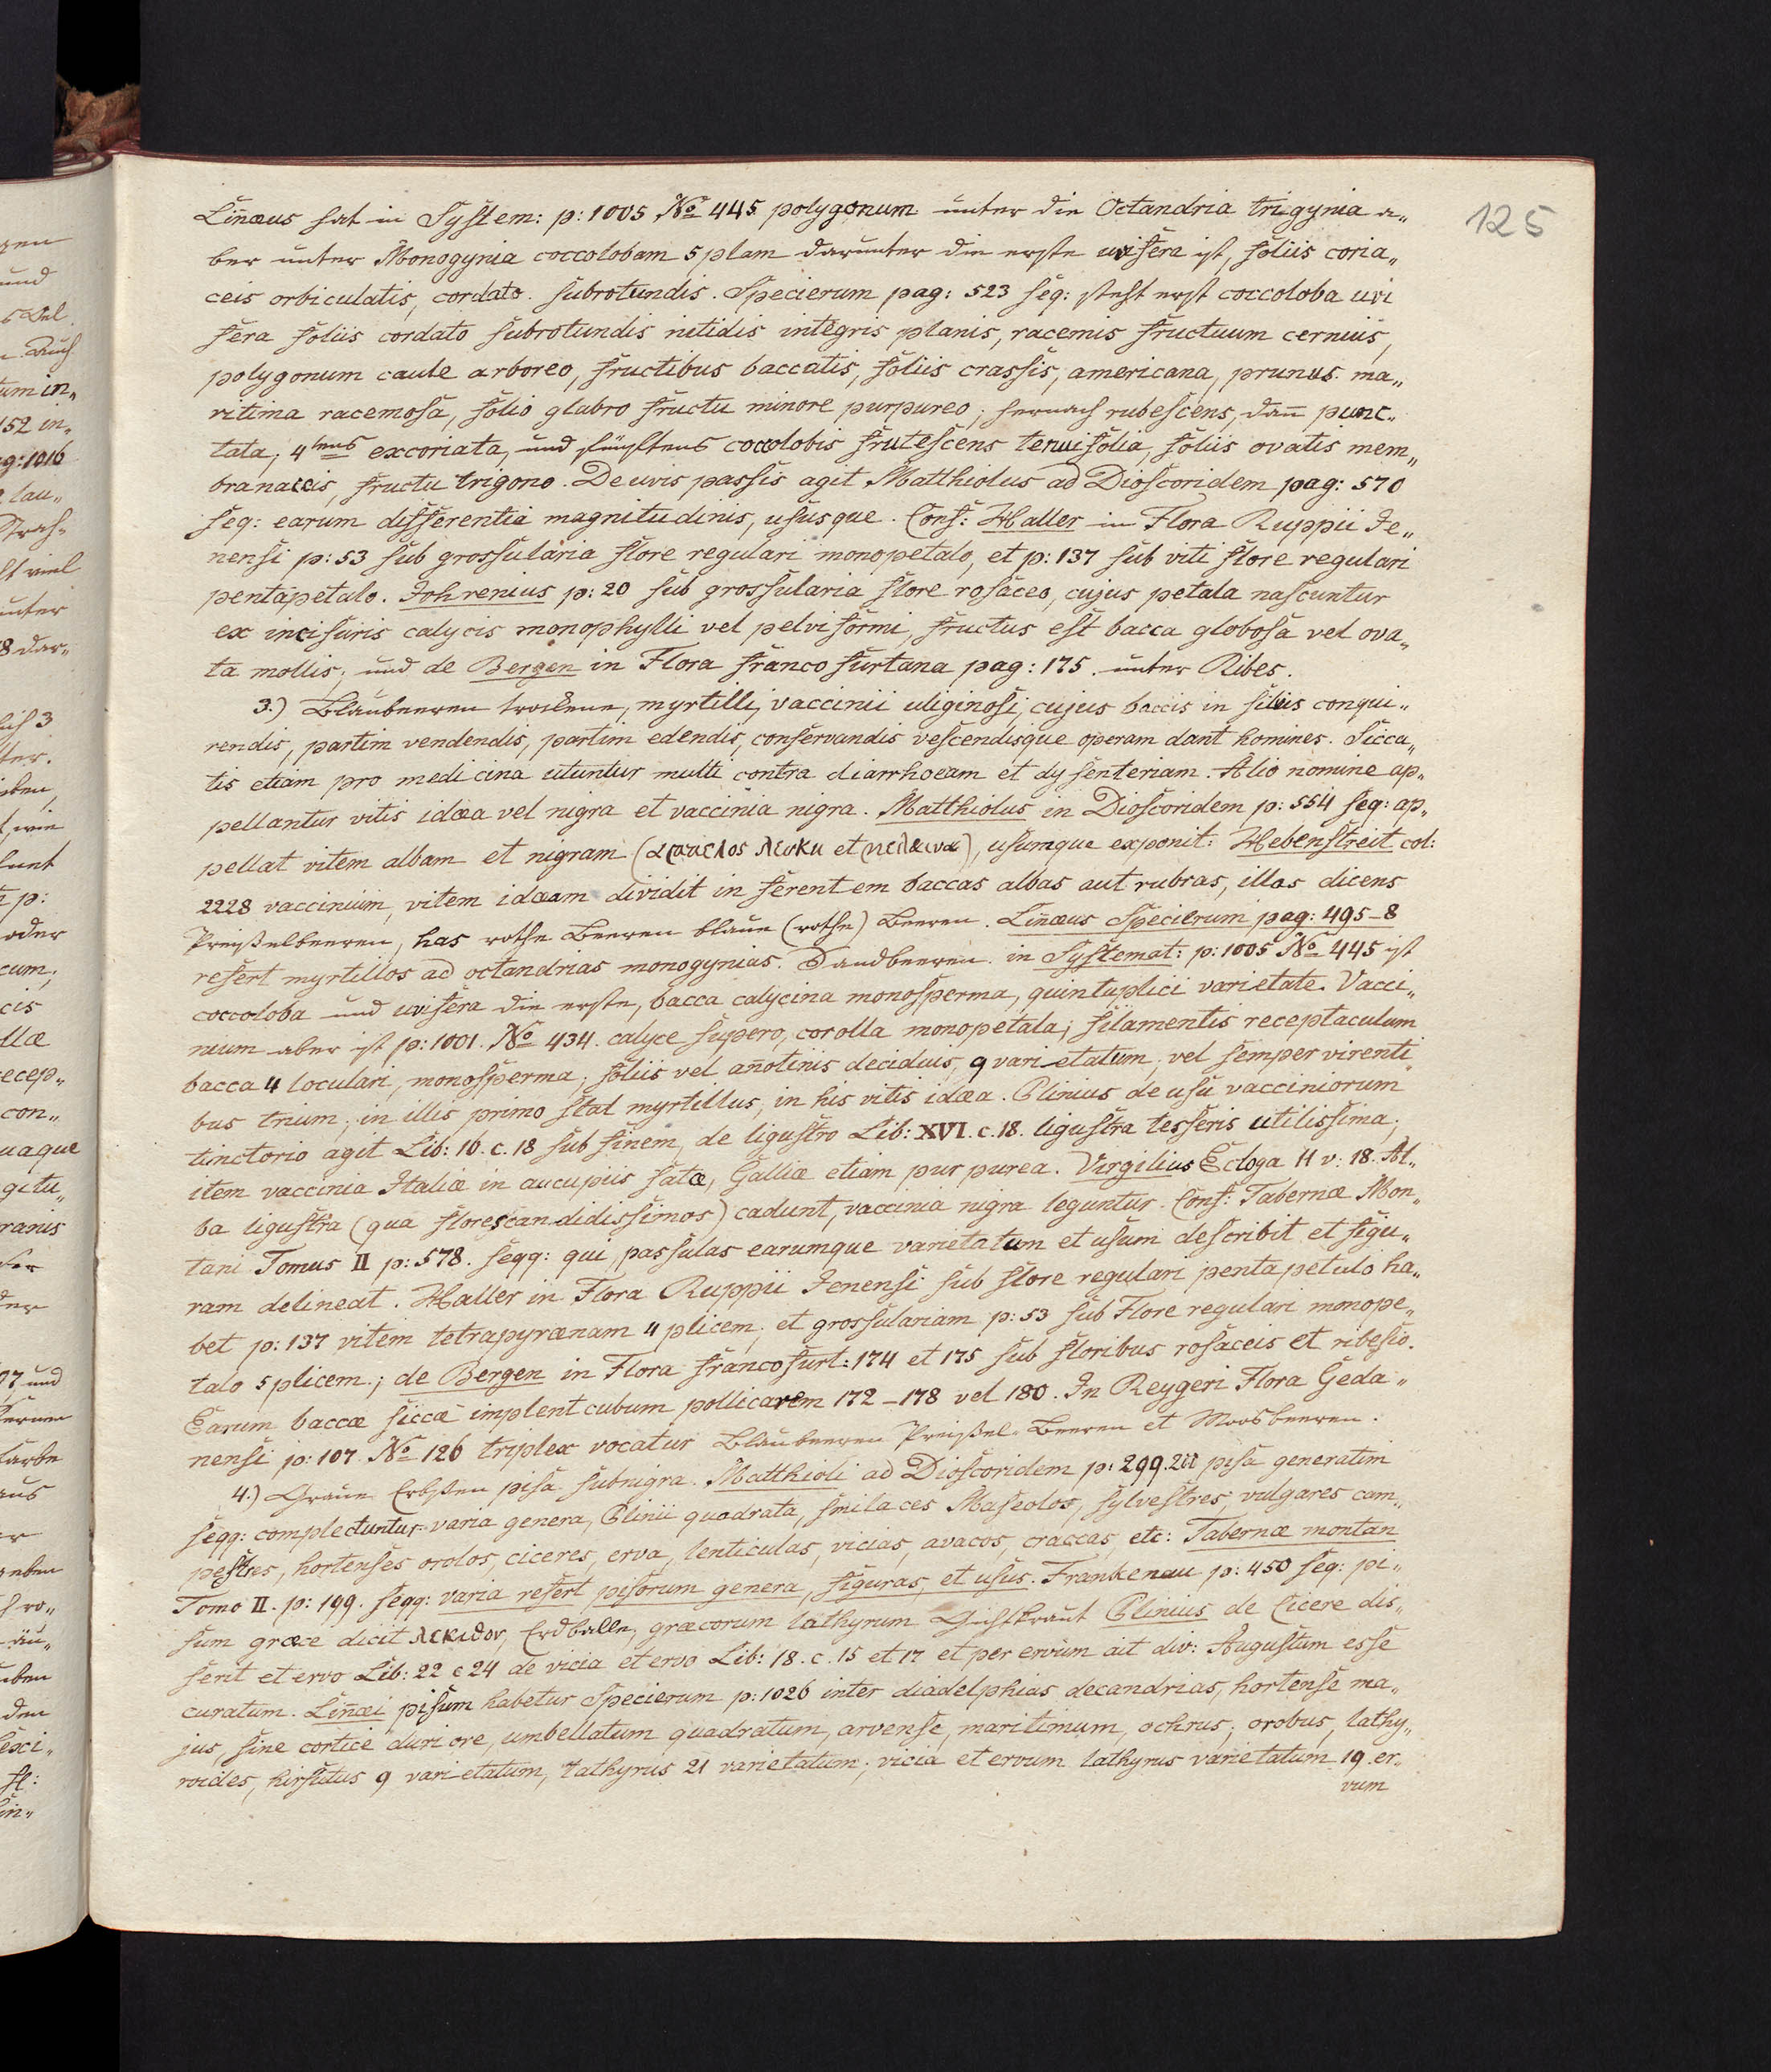 125
Lin̄æus hat in System: p: 1005 No 445 polygonum unter die Octandria trigynia a„
ber unter Monogynia coccolobam 5plam darunter die erste uvifera ist, foliis coria„
ceis orbiculatis, cordato. subrotundis. Specierum pag: 523 seq: steht erst coccoloba uvi
fera foliis cordato subrotundis nitidis integris planis, racemis fructuum cernuis,
polygonum caule arboreo, fructibus baccatis, foliis crassis, americana, prunus ma„
ritima racemosa, folio glabro fructu minore purpureo, hernach rubescens, dan̄ punc„
tata, 4tens excoriata, und fünftens coccolobis frutescens tenuifolia, foliis ovatis mem„
branaceis, fructu trigono. De uvis passis agit Matthiolus ad Dioscoridem pag: 570
seq: earum differentia magnitudinis, ususque. Conf: Haller in Flora Ruppii Je„
nensi p: 53 sub grossularia flore regulari monopetalo, et p: 137 sub viti flore regulari
pentapetalo. Johrenius p: 20 sub grossularia flore rosaceo, cujus petala nascuntur
ex incisuris calycis monophylli vel pelviformi, fructus est bacca globosa vel ova„
ta mollis; und de Bergen in Flora francofurtana pag: 175. unter Ribes.
3.) Blaubeeren trockene, myrtilli, vaccinii uliginosi, cujus baccis in silvis conqui„
rendis, partim vendendis, partim edendis, conservandis vescendisque operam dant homines. Sicca„
tis etiam pro medicina utuntur multi contra diarrhoeam et dysenteriam. Alio nomine ap„
pellantur vitis idæa vel nigra et vaccinia nigra. Matthiolus in Dioscoridem p: 554 seq: ap„
pellat vitem albam et nigram, usumque exponit: Hebenstreit col:
2228 vaccinium, vitem idæam dividit in ferentem baccas albas aut rubras, illas dicens
Preißelbeeren, has rothe Beeren blaue (rothe) Beeren. Lin̄æus Specierum pag: 495–8
refert myrtillos ad octandrias monogynias. Sandbeeren. in Systemat: p: 1005 No 445 ist
coccoloba und uvifera die erste, bacca calycina monosperma, quintuplici varietate. Vacci„
nium aber ist p: 1001. No 434. calyce supero, corolla monopetala; filamentis receptaculum
bacca 4 loculari, monosperma; foliis vel an̄otinis deciduis, 9 varietatum, vel semper virenti„
bus trium; in illis primo stat myrtillus, in his vitis idæa. Plinius de usu vacciniorum
tinctorio agit Lib: 16. c. 18 sub finem, de ligustro Lib: XVI. c. 18. ligustra tesseris utilissima;
item vaccinia Italiæ in aucupiis satæ, Galliæ etiam purpurea. Virgilius Ecloga II v: 18. Al„
ba ligustra (qua flores candidissimos) cadunt, vaccinia nigra leguntur. Conf: Tabernæ Mon„
tani Tomus II p: 578. seqq: qui passulas earumque varietatum et usum describit et figu„
ram delineat. Haller in Flora Ruppii Jenensi sub flore regulari pentapetalo ha„
bet p: 137 vitem tetrapyrænam 4plicem, et grossulariam p: 53 sub Flore regulari monope„
talo 5plicem; de Bergen in Flora francofurt: 174 et 175 sub floribus rosaceis et ribesio.
Earum baccæ siccæ implent cubum pollicarem 172–178 vel 180. In Reygeri Flora Geda„
nensi p: 107 No 126 triplex vocatur Blaubeeren Preißel-Beeren et Moosbeeren.
4.) Graue Erbsen pisa subnigra. Matthioli ad Dioscoridem p: 299. pisa generatim
seqq: complectuntur varia genera, Plinii quadrata, smilaces sylvestres, vulgares cam„
pestres, hortenses orolos, ciceres, erva, lenticulas, vicias, avacos, craccas, etc: Tabernæ montan
Tomo II. p: 199. seqq: varia refert pisorum genera, figuras, et usus. Frankenau p: 450 seq: pi„
sum græce dicit λεκιθον, græcorum lathyrum Plinius de Cicere dis„
serit et ervo Lib: 22 c 24 de vicia et ervo Lib: 18. c. 15 et 17 et per ervum ait div: Augustum esse
curatum. Lin̄æi pisum habetur Specierum p: 1026 inter diadelphias decandrias, hortense ma„
jus, sine cortice duriore, umbellatum quadratum, arvense, maritimum, ochrus; orobus, lathy„
roides, hirsutus 9 varietatum, lathyrus 21 varietatum; vicia et ervum lathyrus varietatum 19. er„
vum